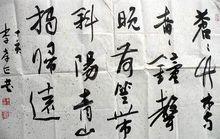 蒼〻竹林寺
杳〻鐘聲
晚荷笠帶
斜陽青山
獨歸遠